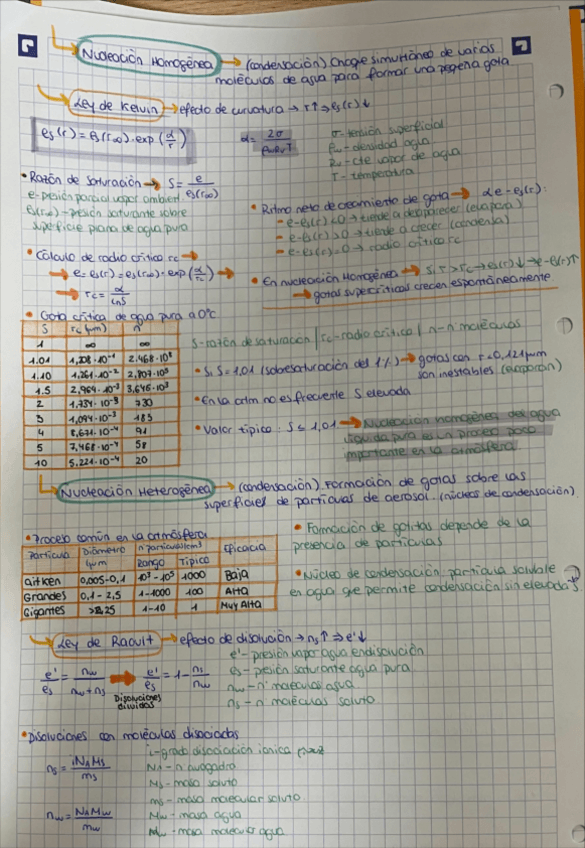 Nucleación Homogénea → (condensación) Choque simultáneo de varias
moléculas de agua para formar una pequeña gota
Ley de Kelvin → efecto de curvatura → r↑ ⇒ es(r)↓
es(r) = es(r∞)·exp(α/r)
α = 2σ / ρwRvT
σ - tensión superficial
ρw - densidad agua
Rv - cte vapor de agua
T - temperatura
• Razón de saturación → S = e / es(r∞)
e - presión parcial vapor ambient.
es(r∞) - presión saturante sobre
superficie plana de agua pura
• Ritmo neto de crecimiento de gota → α e - es(r):
- e - es(r) < 0 → tiende a desaparecer (evapora)
- e - es(r) > 0 → tiende a crecer (condensa)
- e - es(r) = 0 → radio crítico rc
• Cálculo de radio crítico rc →
→ e = es(rc) = es(r∞)·exp(α/rc) →
→ rc = α / lnS
• En nucleación Homogénea → Si r > rc → es(r)↓ → e - es(r)↑
→ gotas supercríticas crecen espontáneamente
• Gota crítica de agua pura a 0°C
S rc (μm) n
1 ∞ ∞
1.01 1,208·10⁻¹ 2.468·10⁸
1.10 1,261·10⁻² 2,807·10⁵
1.5 2,964·10⁻³ 3,645·10³
2 1,734·10⁻³ 730
3 1,094·10⁻³ 183
4 8,671·10⁻⁴ 91
5 7,468·10⁻⁴ 58
10 5,221·10⁻⁴ 20
S - razón de saturación / rc - radio crítico / n - n° moléculas
• Si S = 1,01 (sobresaturación del 1%) → gotas con r = 0,121μm
son inestables (evaporan)
• En la atm no es frecuente S elevada
• Valor típico: S ≤ 1,01 → Nucleación homogénea del agua
líquida pura es un proceso poco
importante en la atmósfera
Nucleación Heterogénea → (condensación). Formación de gotas sobre las
superficies de partículas de aerosol. (núcleos de condensación)
• Proceso común en la atmósfera
Partícula Diámetro μm n° partículas/cm³ Eficacia
Rango Típico
Aitken 0,005-0,1 10³-10⁵ 1000 Baja
Grandes 0,1-2,5 1-1000 100 Alta
Gigantes >2,25 1-10 1 Muy Alta
• Formación de gotitas depende de la
presencia de partículas
• Núcleo de condensación: partícula soluble
en agua que permite condensación sin elevada S
Ley de Raoult → efecto de disolución → ns↑ ⇒ e'↓
e'/es = nw / nw+ns → e'/es = 1 - ns/nw
Disoluciones
diluidas
e' - presión vapor agua en disolución
es - presión saturante agua pura
nw - n° moléculas agua
ns - n° moléculas soluto
• Disoluciones con moléculas disociadas
ns = iNAMs / ms
nw = NAMw / mw
i - grado disociación iónica
NA - n° avogadro
Ms - masa soluto
ms - masa molecular soluto
Mw - masa agua
mw - masa molecular agua